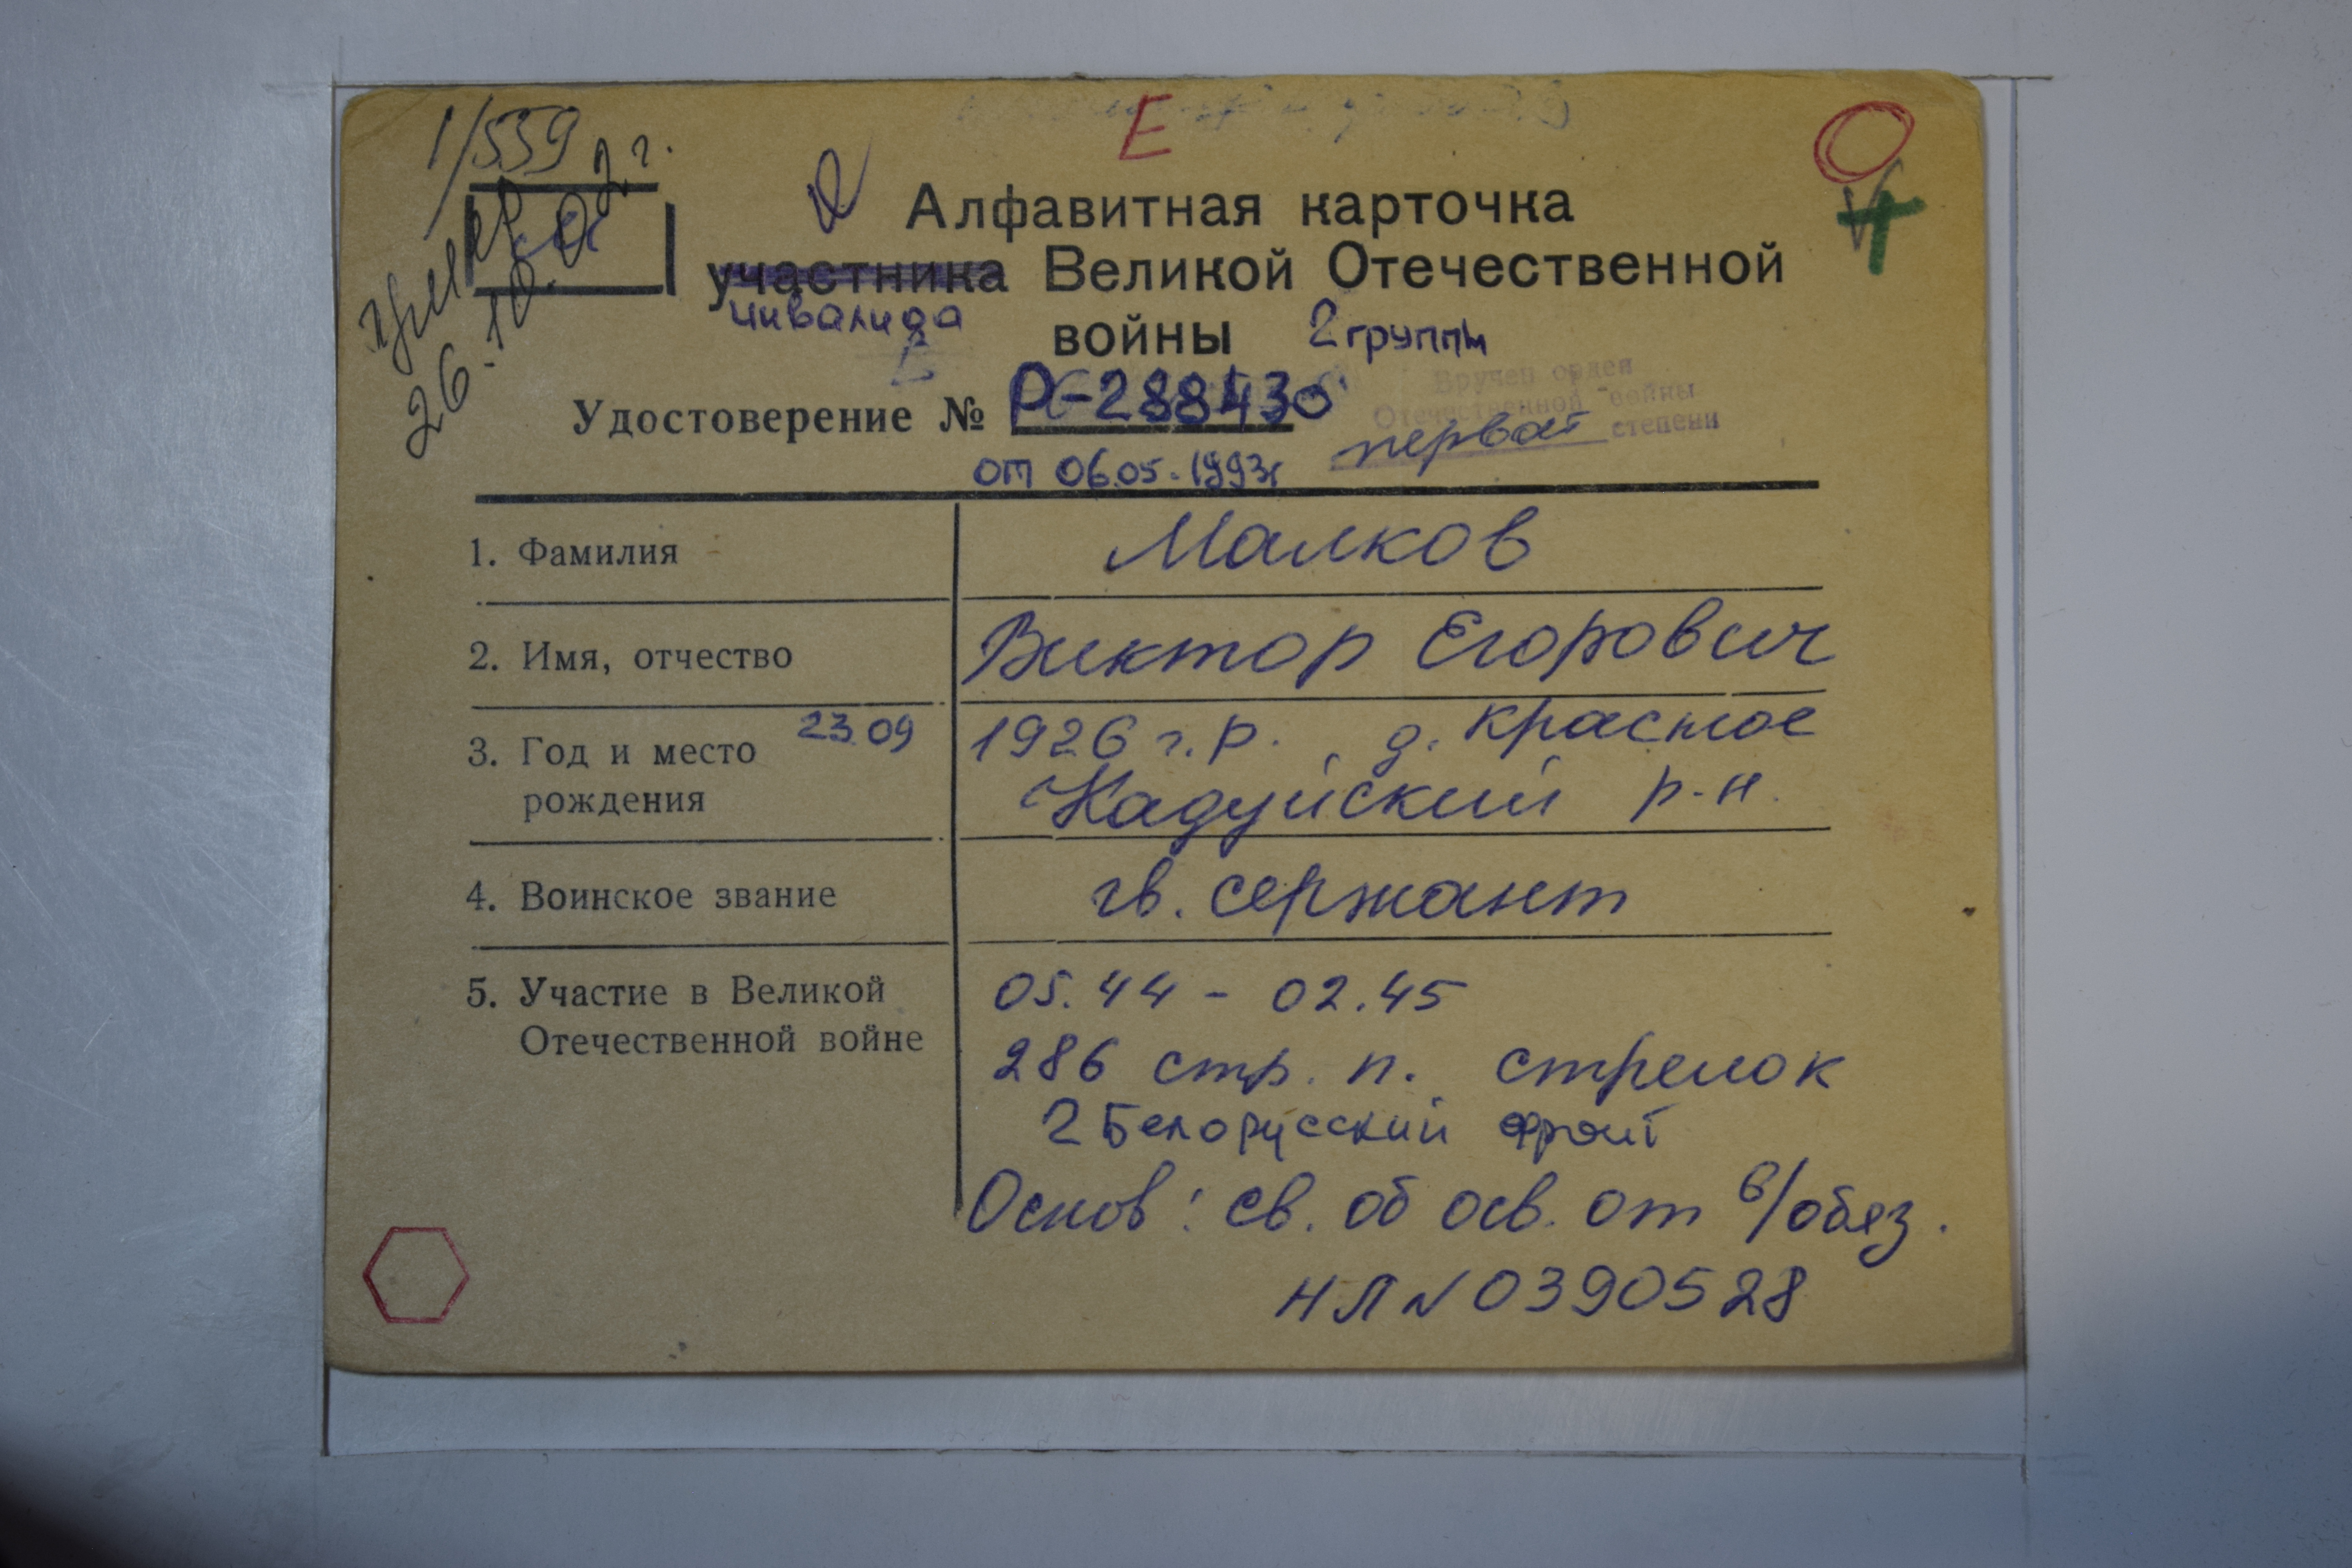 1/559
умер
26.10.02 г.
Е
Алфавитная карточка
участника Великой Отечественной
инвалида
войны 2 группы
Удостоверение № РС-288430
Вручен орден
Отечественной войны
первой степени
от 06.05.1993г
1. Фамилия Малков
2. Имя, отчество Виктор Егорович
3. Год и место 23.09 1926 г.р. д. Красное
рождения Кадуйский р-н.
4. Воинское звание гв. сержант
5. Участие в Великой 05.44 - 02.45
Отечественной войне
286 стр. п. стрелок
2 Белорусский фронт
Основ: св. об осв. от в/обяз.
НЛ № 0390528